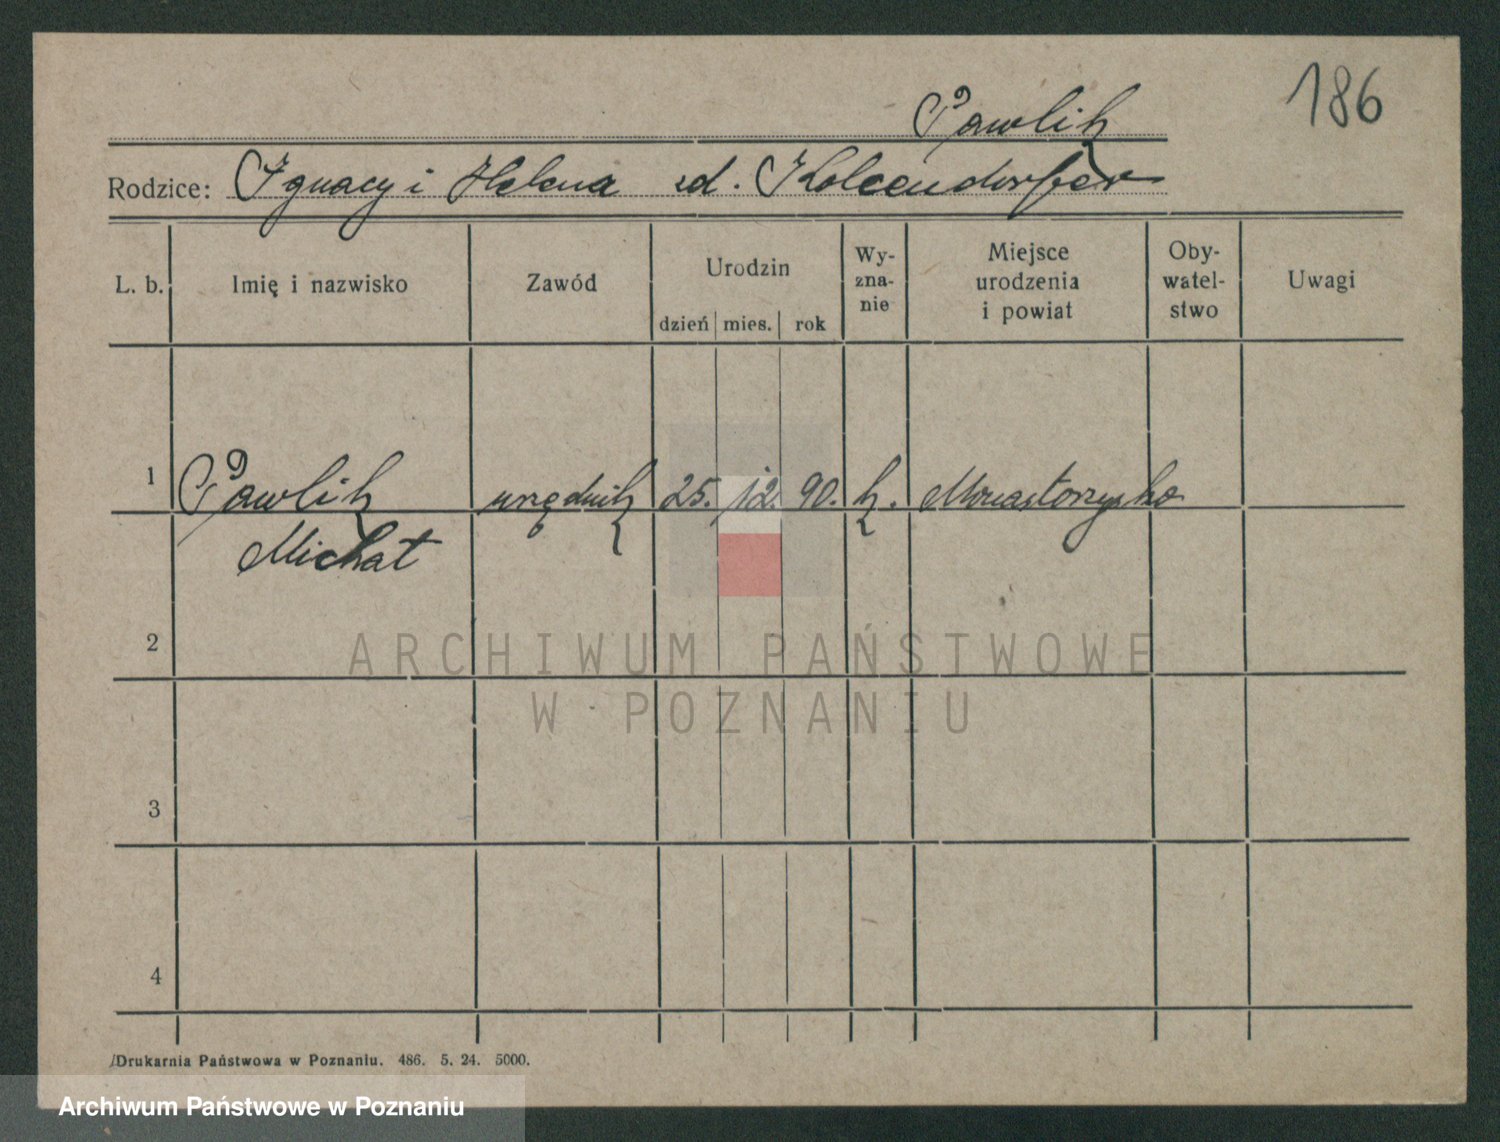 186
Pawlik
Rodzice: Ignacy i Helena zd.
L. b. Imię i nazwisko Zawód Urodzin dzień mies. rok Wy-zna-nie Miejsce urodzenia i powiat Oby-watel-stwo Uwagi
1 Pawlik urzędnik 25. 12. 90. k. Monastorzysko
Michał
2
ARCHIWUM PAŃSTWOWE
W POZNANIU
3
4
Drukarnia Państwowa w Poznaniu. 486. 5. 24. 5000.
Archiwum Państwowe w Poznaniu